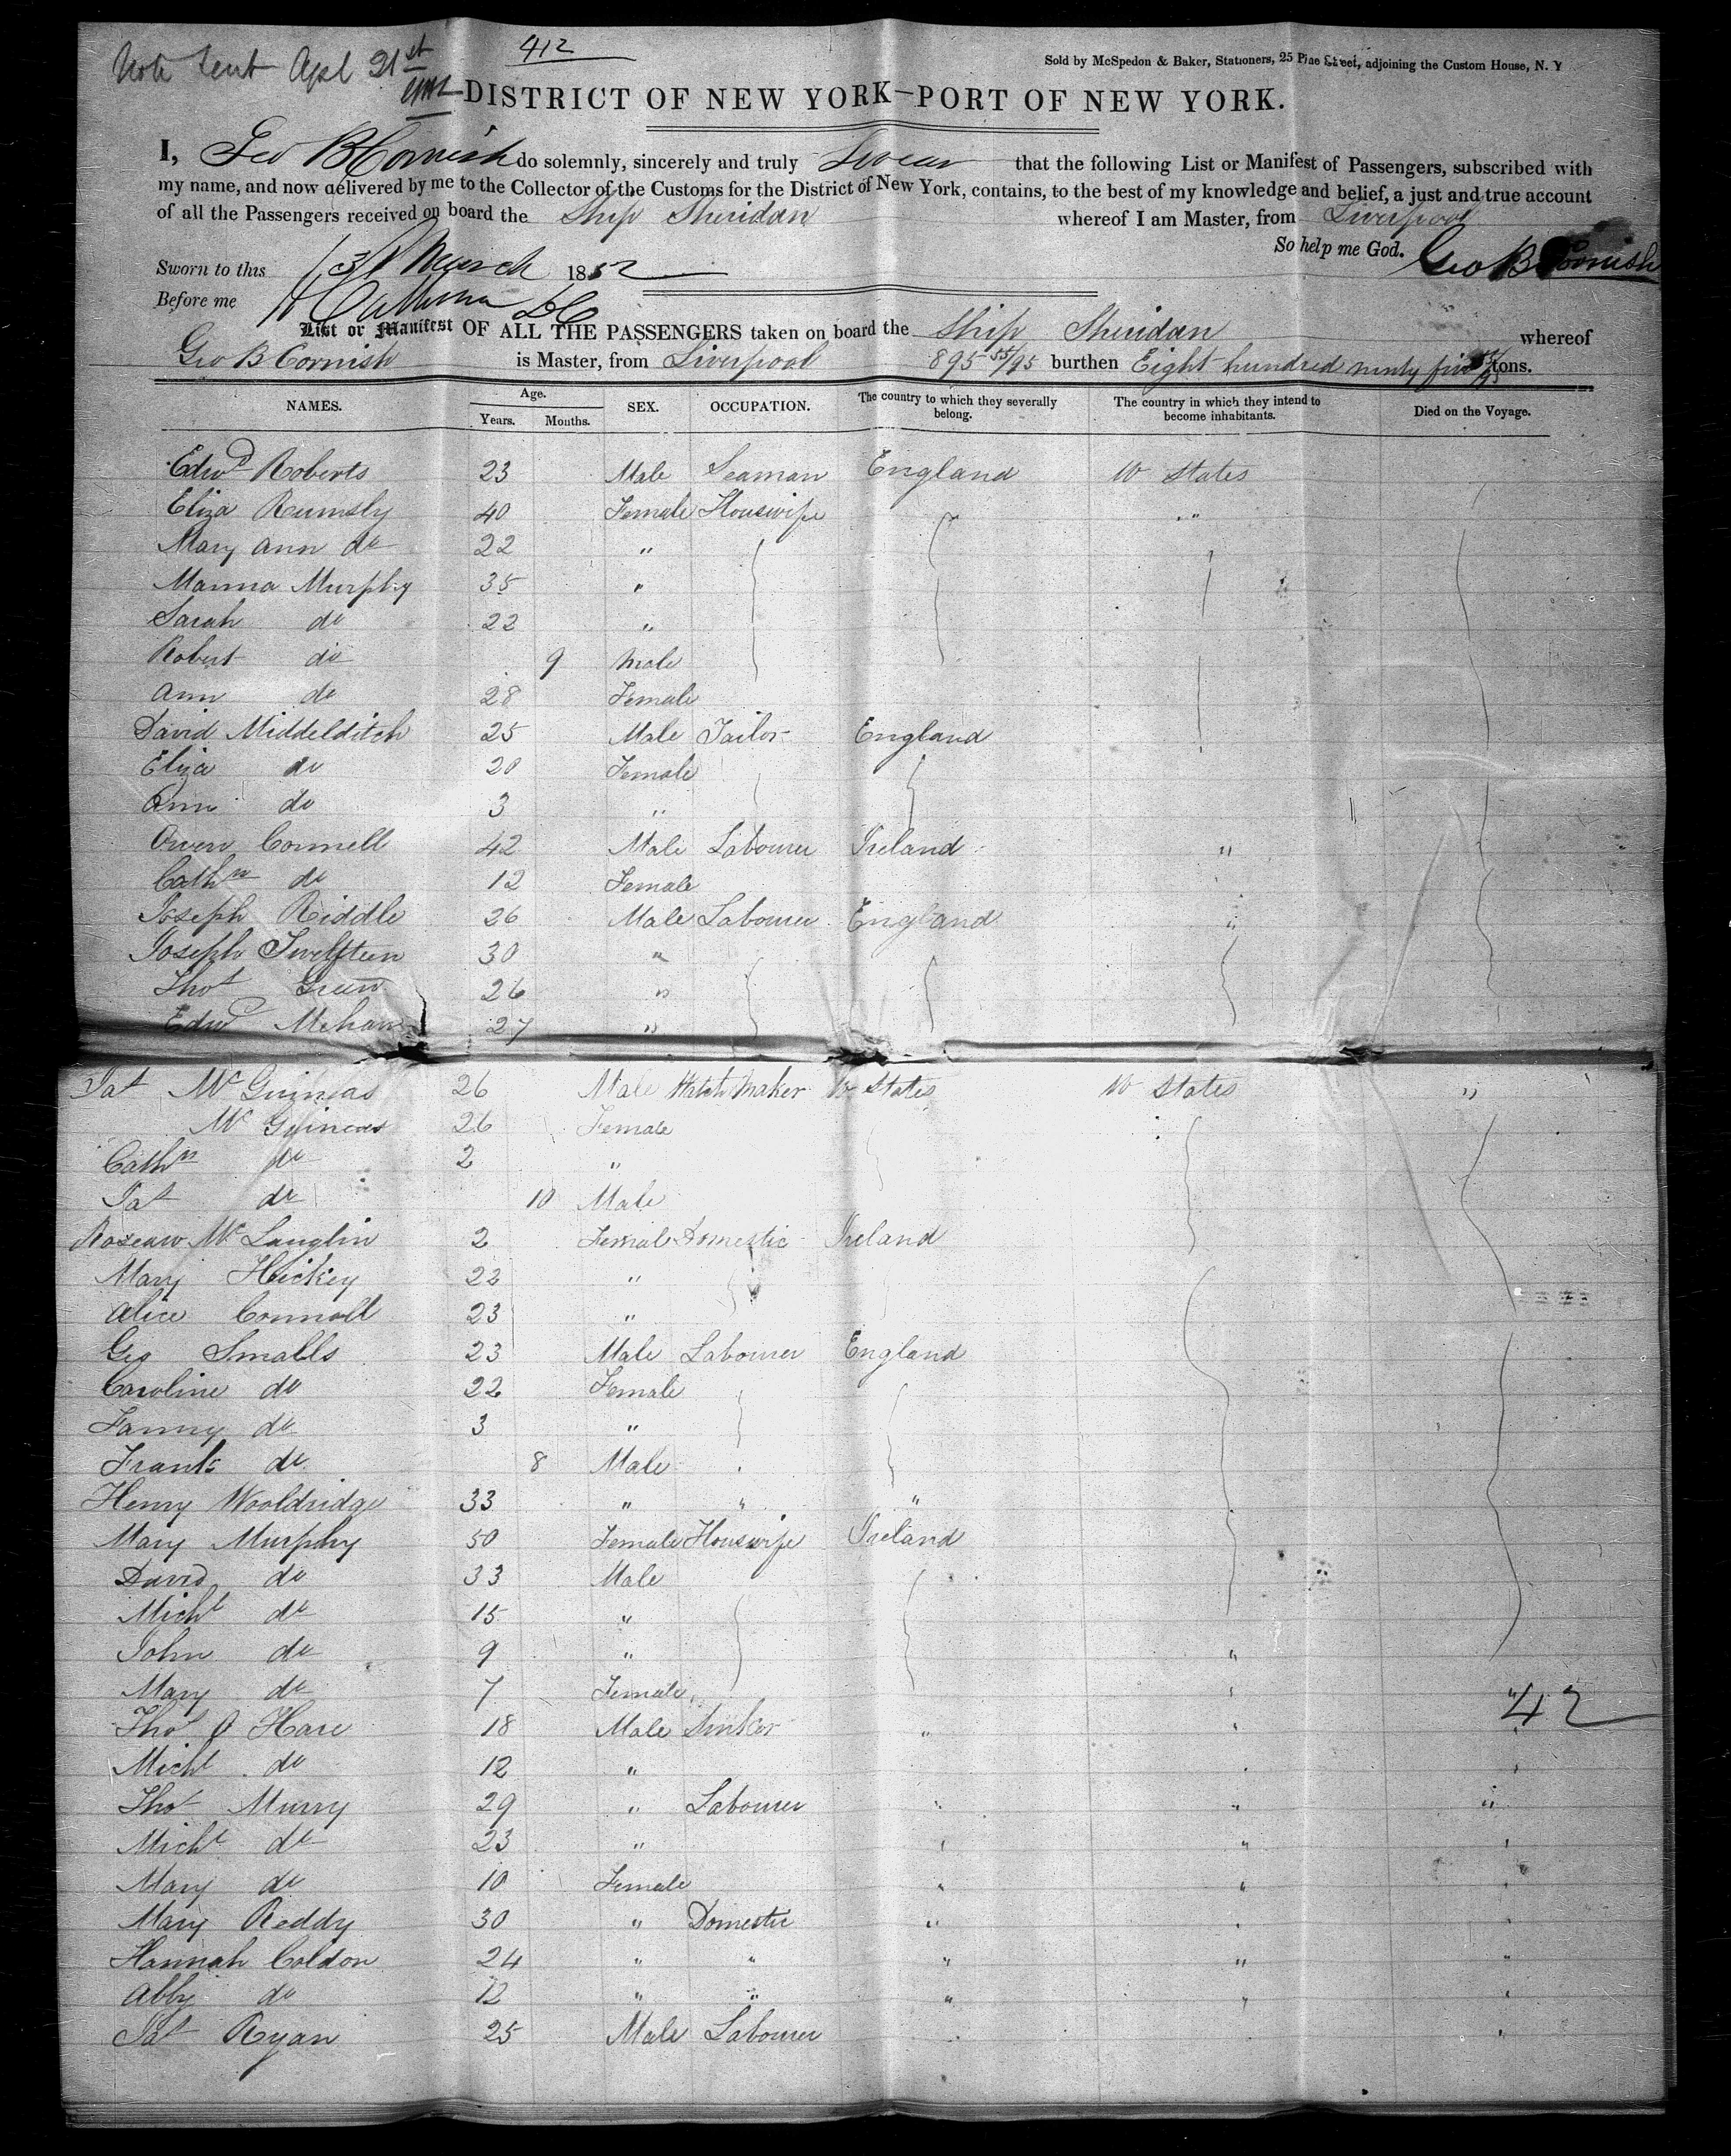 Note sent Apl 21st
412
Sold by McSpedon & Baker, Stationers, 25 Pine Street, adjoining the Custom House, N. Y
DISTRICT OF NEW YORK—PORT OF NEW YORK.
I, Geo B Cornish do solemnly, sincerely and truly Swear that the following List or Manifest of Passengers, subscribed with
my name, and now delivered by me to the Collector of the Customs for the District of New York, contains, to the best of my knowledge and belief, a just and true account
of all the Passengers received on board the Ship Sheridan whereof I am Master, from Liverpool
So help me God. Geo B Cornish
Sworn to this 31 March 1852
Before me
List or Manifest OF ALL THE PASSENGERS taken on board the Ship Sheridan whereof
Geo B Cornish is Master, from Liverpool 895 55/95 burthen Eight hundred ninty five 55/95 tons.
NAMES. Age. Years. Months. SEX. OCCUPATION. The country to which they severally belong. The country in which they intend to become inhabitants. Died on the Voyage.
Edwd Roberts 23 Male Seaman England U States
Eliza Rumsby 40 Female Houswife "
Mary Ann do 22 "
Manna Murphy 35 "
Sarah do 22 "
Robert do 9 Male
Ann do 28 Female
David Middelditch 25 Male Tailor England
Eliza do 20 Female
Ann do 3 "
Owen Connell 42 Male Labourer Ireland "
Cathn do 12 Female
Joseph Riddle 26 Male Labourer England "
Joseph 30 "
Thos Green 26 "
Edwd Mehan 27 "
Pat McGuineas 26 Male Watch Maker U States U States "
McGuineas 26 Female
Cathn do 2 "
Pat do 10 Male
Roseann McLauglin 2 Female Domestic Ireland
Mary Hickey 22 "
Alice Connoll 23 "
Geo Smalls 23 Male Labourer England
Caroline do 22 Female
Fanny do 3 "
Frank do 8 Male
Henry Wooldridge 33 " " "
Mary Murphy 50 Female Houswife Ireland
David do 33 Male
Michl do 15 "
John do 9 " "
Mary do 7 Female " " 42
Thos O Hare 18 Male " " "
Michl do 12 " " "
Thos Murry 29 " Labourer " " "
Michl do 23 " " " "
Mary do 10 Female " " "
Mary Reddy 30 " Domestic " " "
Hannah Coldon 24 " " " " "
Abby do 12 " " " " "
Pat Ryan 25 Male Labourer "